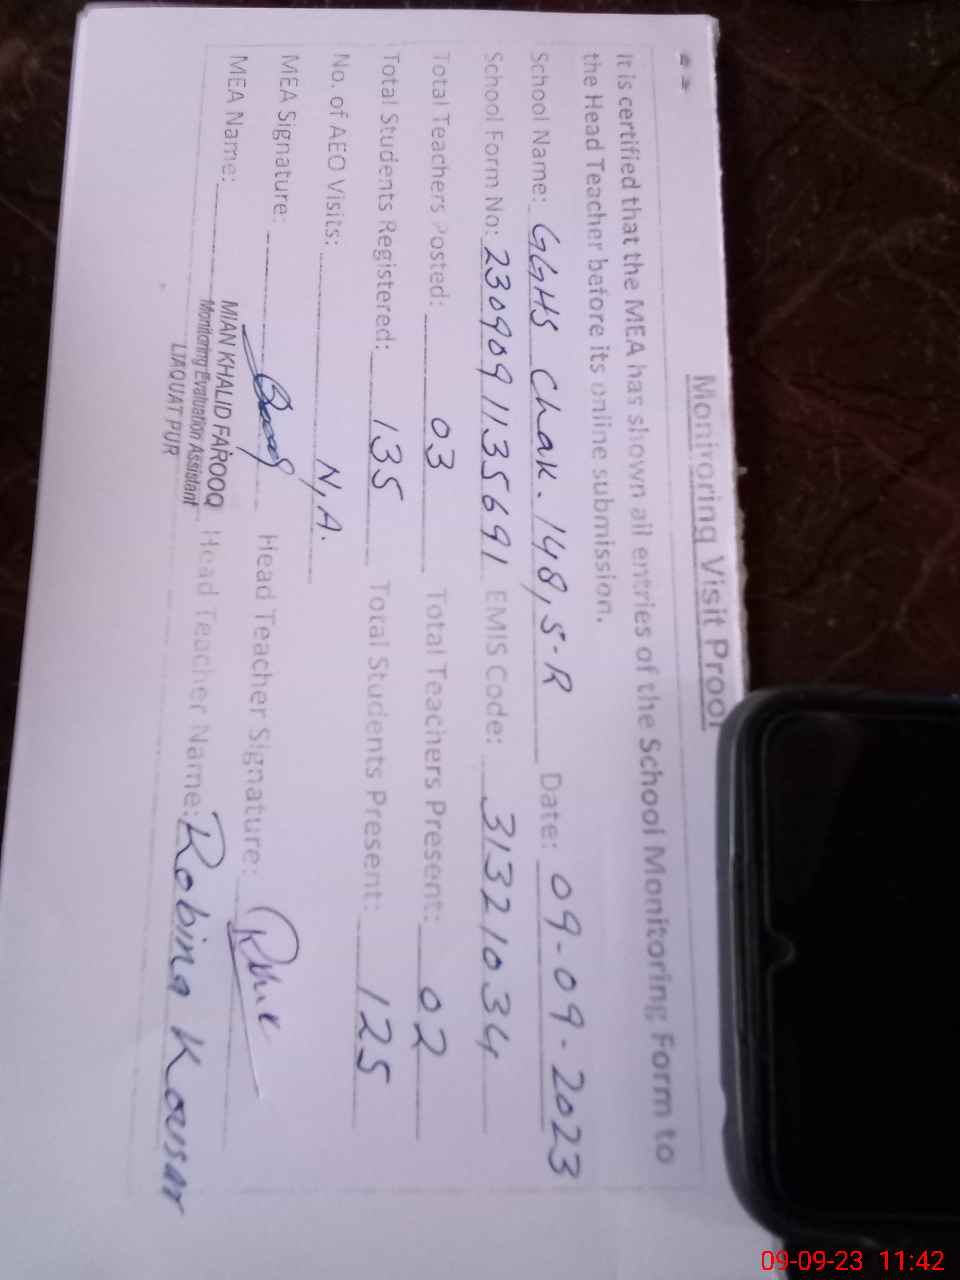 Monitoring Visit Proof
It is certified that the MEA has shown all entries of the School Monitoring Form to
the Head Teacher before its online submission.
School Name: GGHS Chak. 148, S-R Date: 09-09-2023
School Form No: 2309091135691 EMIS Code: 31321034
Total Teachers Posted: 03 Total Teachers Present: 02
Total Students Registered: 135 Total Students Present: 125
No. of AEO Visits: N,A.
MEA Signature: Head Teacher Signature:
MEA Name: MIAN KHALID FAROOQ Head Teacher Name: Robina Kousar
Monitoring Evaluation Assistant
LIAQUAT PUR
09-09-23 11:42